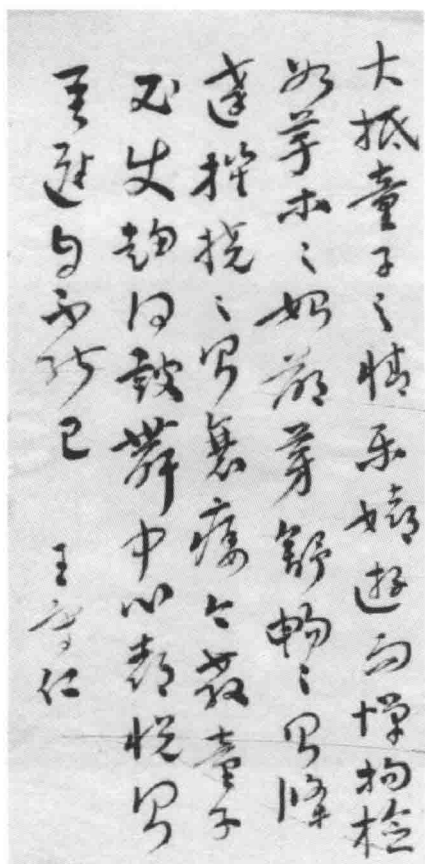 大抵童子之情乐嬉遊而憚拘检
如草木之始萌芽舒畅之则條
達摧挠之则衰痿今教童子
必使趋向鼓舞中心喜悦则
其進自不能已 王守仁